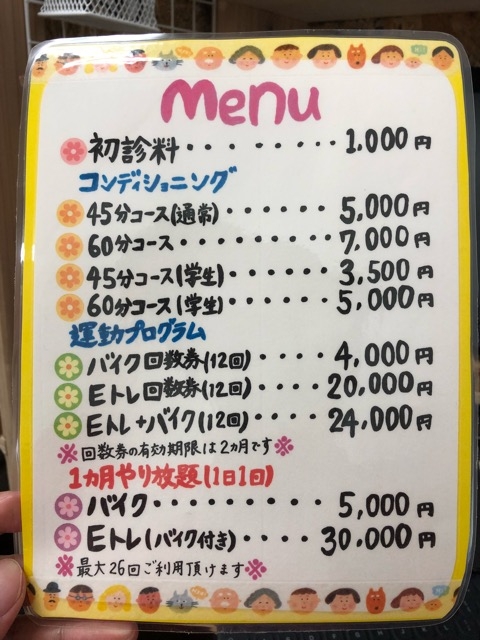 Menu
初診料・・・・・・・・・1,000円
コンディショニング
45分コース(通常)・・・・・・5,000円
60分コース・・・・・・・・・7,000円
45分コース(学生)・・・・・・3,500円
60分コース(学生)・・・・・・5,000円
運動プログラム
バイク回数券(12回)・・・・4,000円
Eトレ回数券(12回)・・・・20,000円
Eトレ+バイク(12回)・・・・24,000円
※回数券の有効期限は2カ月です※
1カ月やり放題(1日1回)
バイク・・・・・・・・・・5,000円
Eトレ(バイク付き)・・・・30.000円
※最大26回ご利用頂けます※